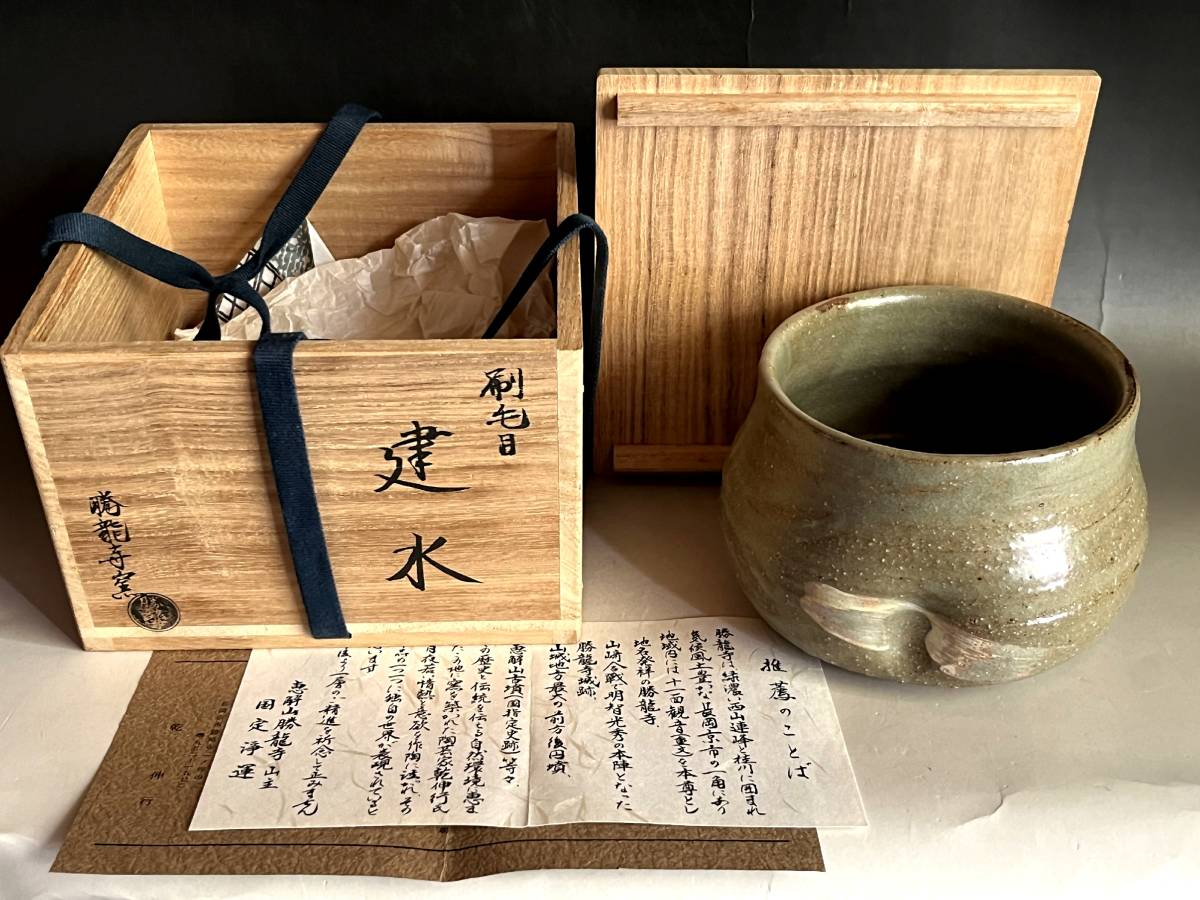 刷毛目
建水
勝龍寺窯
推薦のことば
勝龍寺は、緑濃い西山連峰と桂川に囲まれ
気候風土豊かな長岡京市の一角にあり
地域内には、十一面観音(重文)を本尊とし
地名発祥の勝龍寺
山崎合戦で明智光秀の本陣となった
勝龍寺城跡、
山城地方最大の前方後円墳、
恵解山古墳(国指定史跡)等々、
の歴史と伝統を伝える自然環境に恵ま
た地に窯を築かれた陶芸家乾伸行氏
日夜若い情熱と意欲を作陶に注がれ、その
品の一つ一つに独自の世界が表現されていると
います
後より一層の、精進を祈念して止みません
恵解山勝龍寺 山主
国定浄運
乾伸行